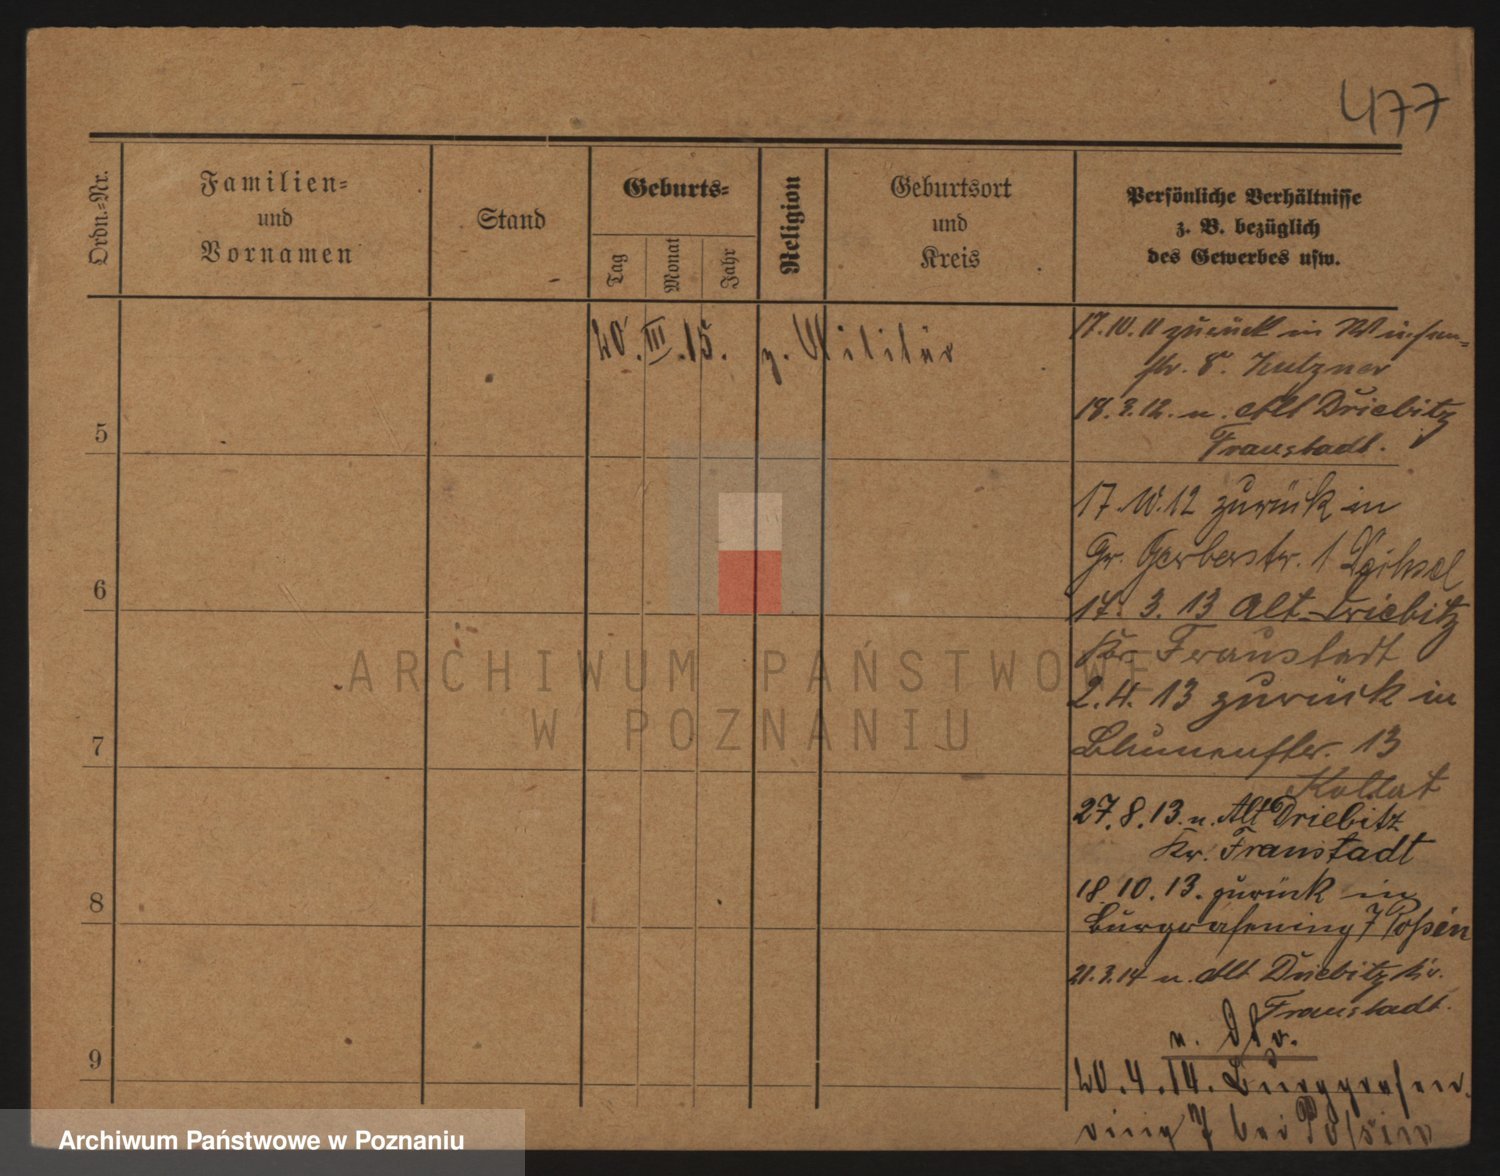 477
Ordn.=Nr.
Familien=
und
Vornamen
Stand
Geburts=
Tag
Monat
Jahr
Religion
Geburtsort
und
Kreis
Persönliche Verhältnisse
z. B. bezüglich
des Gewerbes usw.
20. III. 15. z. Militär
17.10.11 zurück in Wiesen=
str. 8.
18.3.12. n. Alt Driebitz
Fraustadt.
17.10.12 zurück in
Gr. Gerberstr. 1
17. 3. 13 Alt-Driebitz
Kr. Fraustadt
2.4.13 zurück in
Blumenstr. 13
27.8.13. n. Alt Driebitz
Kr. Fraustadt
18.10.13. zurück in
Burggrafenring 7
21.3.14 n. Alt Driebitz Kr.
Fraustadt.
20.4.14. Burggrafen
ring 7 bei
5
6
7
8
9
ARCHIWUM PAŃSTWOWE
W POZNANIU
Archiwum Państwowe w Poznaniu